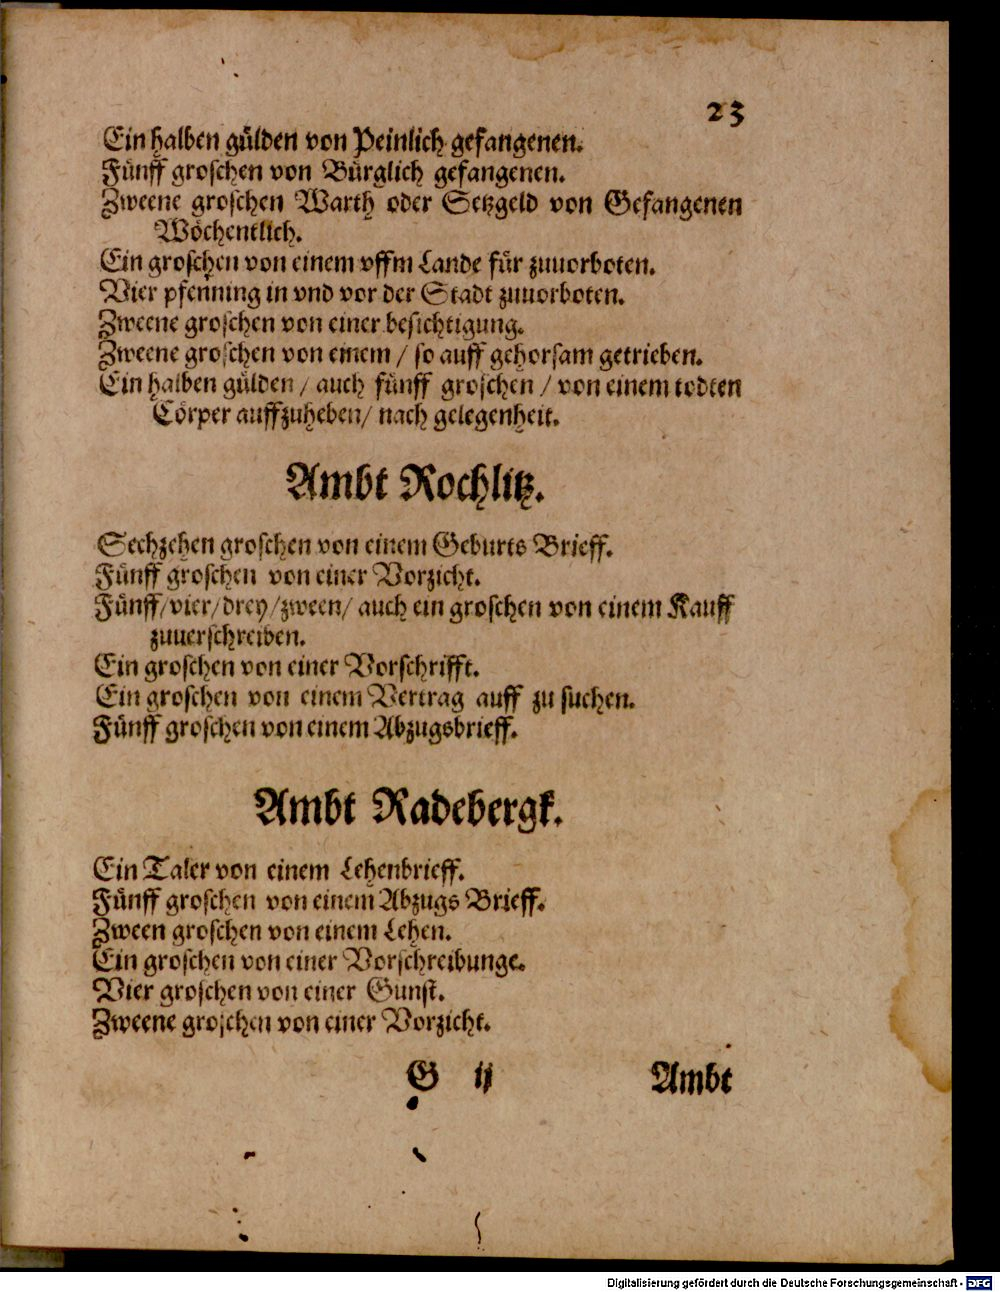 23
Ein halben gülden von Peinlich gefangenen.
Fünff groschen von Bürglich gefangenen.
Zweene groschen Warth oder Setzgeld von Gefangenen
Wöchentlich.
Ein groschen von einem vffm Lande für zuuorboten.
Vier pfenning in vnd vor der Stadt zuuorboten.
Zweene groschen von einer besichtigung.
Zweene groschen von einem / so auff gehorsam getrieben.
Ein halben gülden / auch fünff groschen / von einem todten
Cörper auffzuheben / nach gelegenheit.
Ambt Rochlitz.
Sechzehen groschen von einem Geburts Brieff.
Fünff groschen von einer Vorzicht.
Fünff / vier / drey / zween / auch ein groschen von einem Kauff
zuuerschreiben.
Ein groschen von einer Vorschrifft.
Ein groschen von einem Vertrag auff zu suchen.
Fünff groschen von einem Abzugsbrieff.
Ambt Radebergk.
Ein Taler von einem Lehenbrieff.
Fünff groschen von einem Abzugs Brieff.
Zween groschen von einem Lehen.
Ein groschen von einer Vorschreibunge.
Vier groschen von einer Gunst.
Zweene groschen von einer Vorzicht.
G ij Ambt
Digitalisierung gefördert durch die Deutsche Forschungsgemeinschaft - DFG